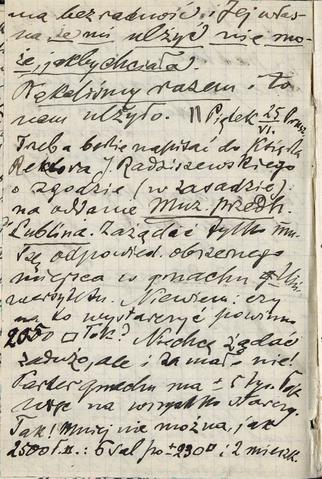 na bezradność i Jej włas-
na że mi ulżyć nie mo-
że, jakby chciała.
Płakaliśmy razem i to
nam ulżyło. || Piątek 25/VI.
Trzeba będzie napisać do Księdza
Rektora J. Radziszewskiego
o zgodzie (w zasadzie):
na oddanie Muz. przedh.
Lublina. Zażądać tylko mu-
szę odpowied. obszernego
miejsca w gmachu Uni-
wersytetu. Niewiem: czy
na to wystarczyć powinno
2050 □ Tak? Niechcę żądać
zadużo, ale i za mało nie!
Parter gmachu ma ± 5 tys.
więc na wszystko starczy.
Tak! Mniej nie można, jak
2500 ł.□.: 6 sal po ± 290□ i 2 mieszk.